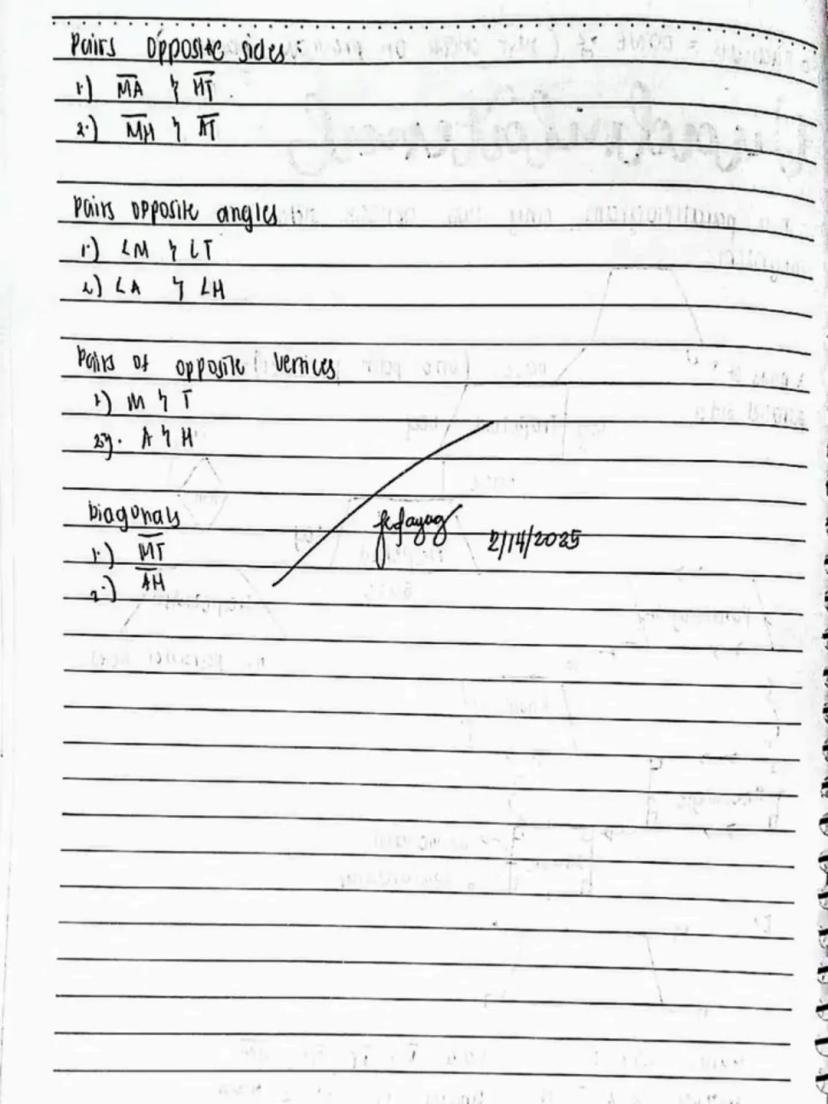 Pairs opposite sides:
1.) MA & HT
2.) MH & AT
Pairs opposite angles:
1.) ∠M & ∠T
2.) ∠A & ∠H
Pairs of opposite vertices
1.) M & T
2). A & H
Diagonals
1.) MT
2.) AH
2/14/2025